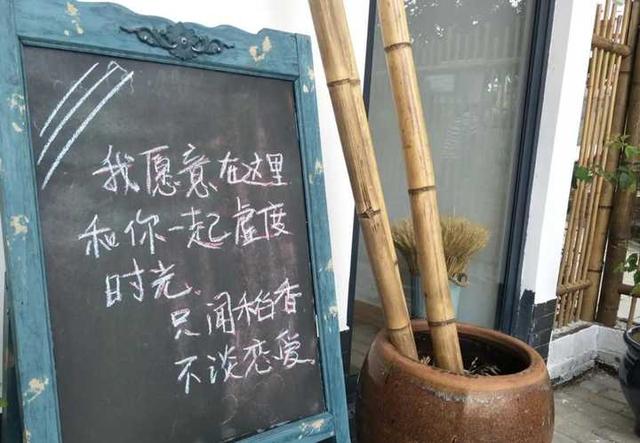 我愿意在这里
和你一起虚度
时光.
只闻稻香
不谈恋爱